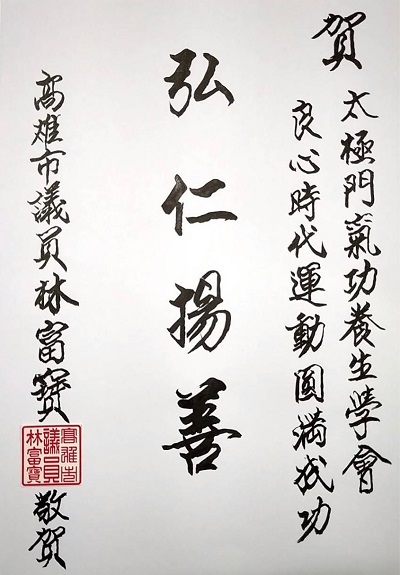 賀
太極門氣功養生學會
良心時代運動圓滿成功
弘仁揚善
高雄市議員林富寶
高雄市
議員
林富寶
敬賀